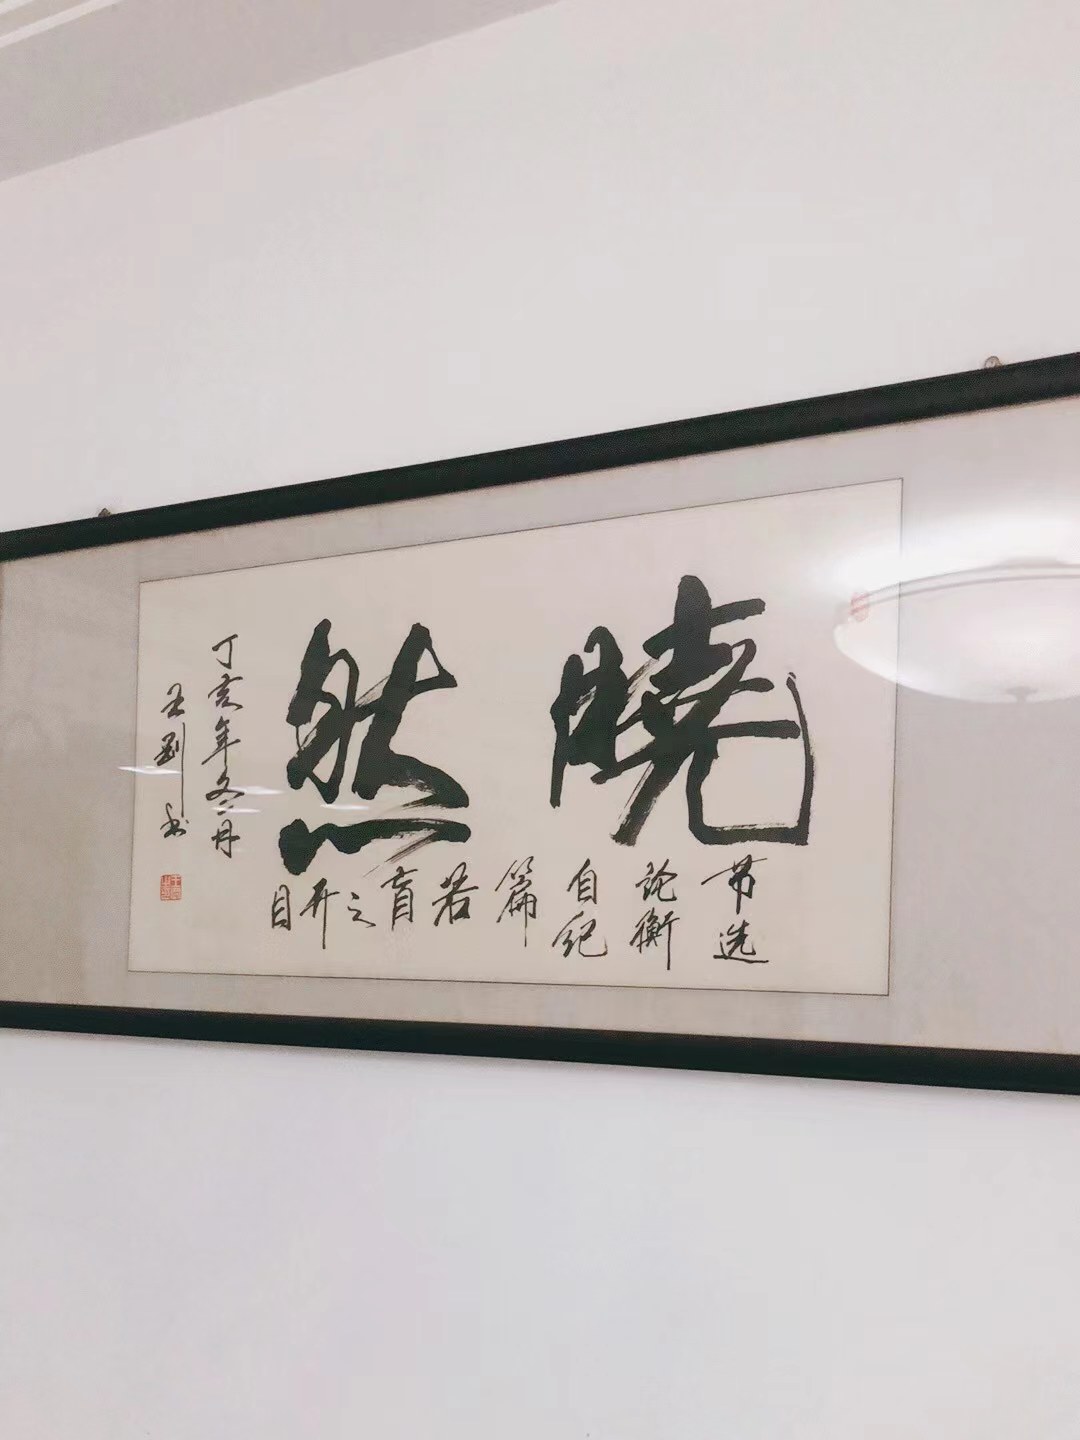 曉然
节选
论衡
自纪
篇
若
盲
之
开
目
丁亥年冬月
王刚书